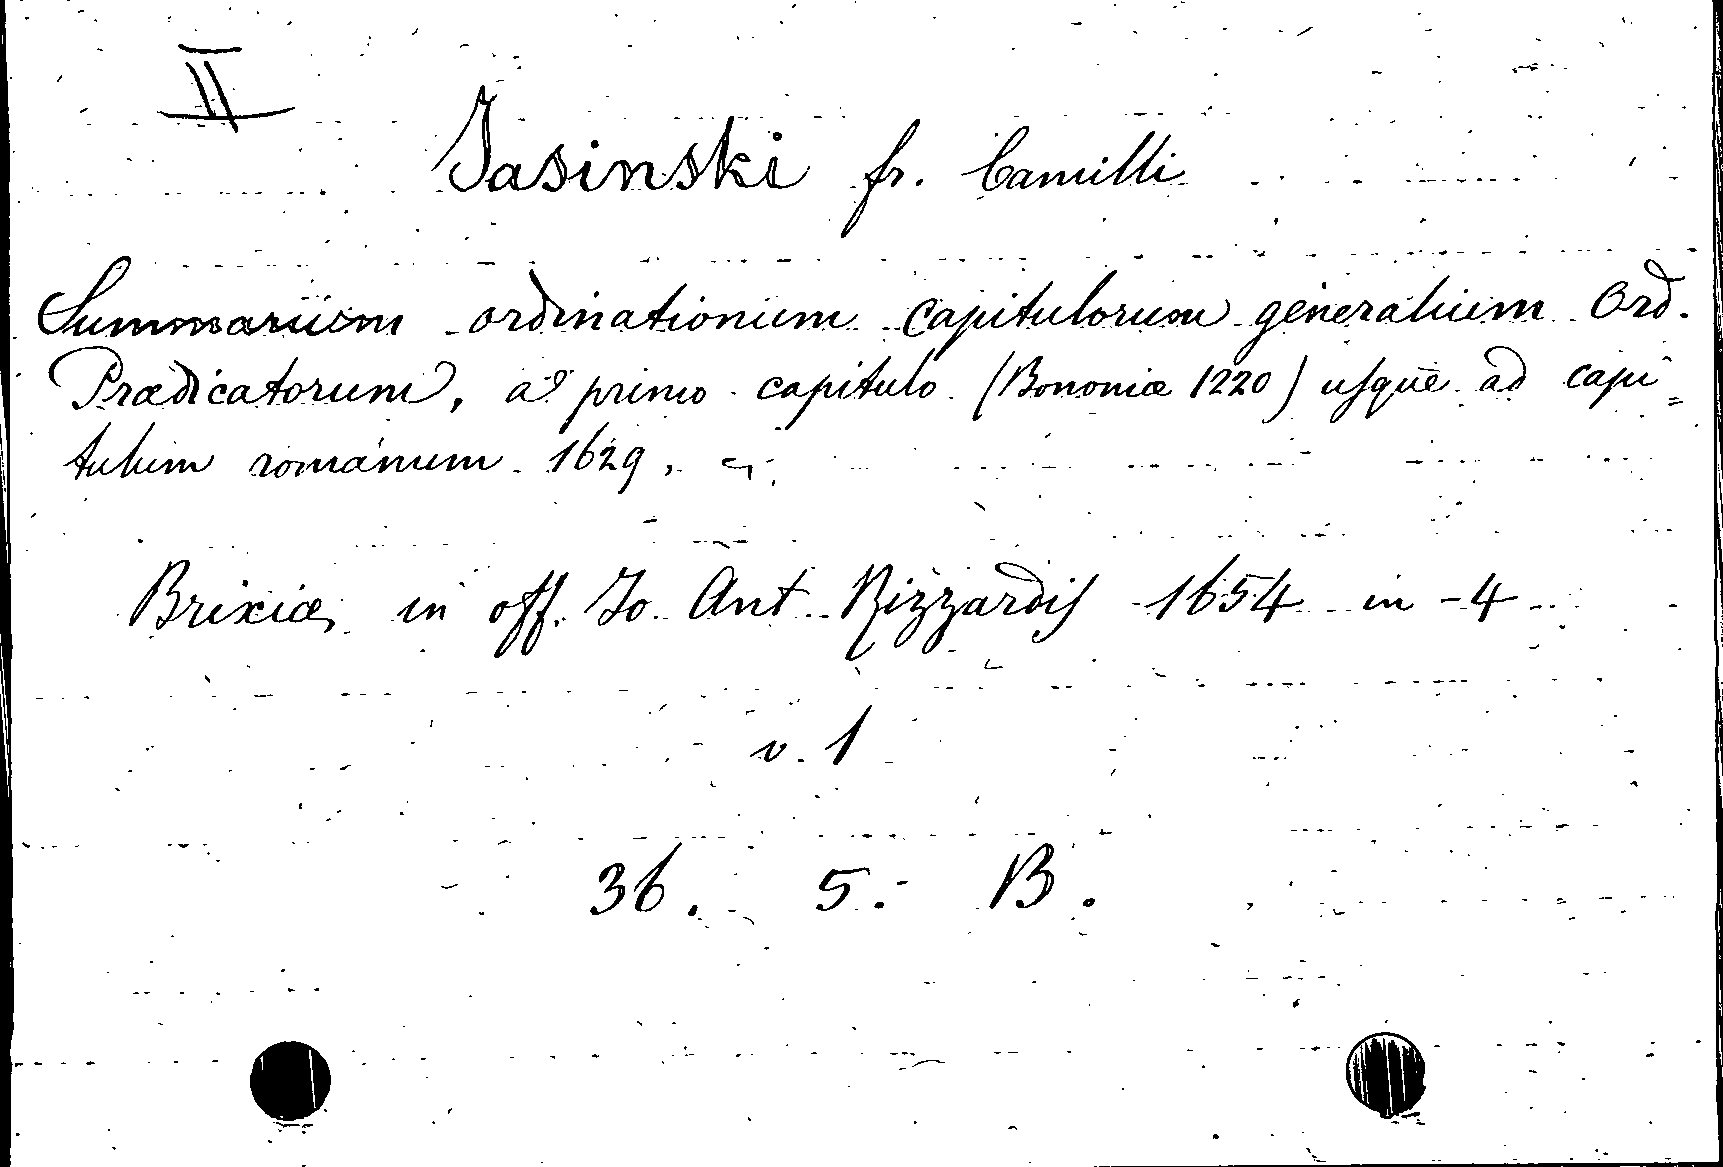 II
Jasinski fr. Camilli
Summarium ordinationum capitulorum generalium Ord.
Prædicatorum, a primo capitulo (Bononiæ 1220) usque ad capi=
tulum romanum 1629,
Brixiæ, in off. Jo. Ant. Rizzardis 1654 in-4
v. 1
36. 5. B.